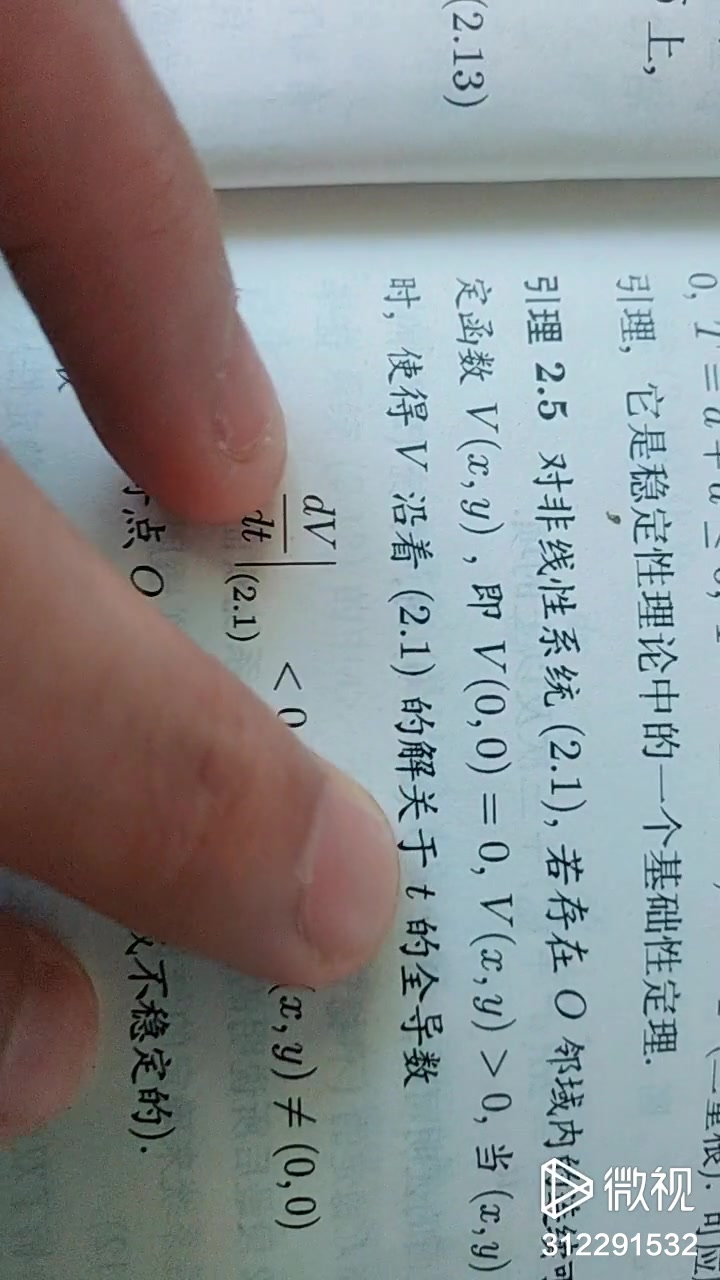 上,
(2.13)
引理, 它是稳定性理论中的一个基础性定理.
引理 2.5 对非线性系统 (2.1), 若存在 O 邻域内
定函数 V(x, y), 即 V(0, 0) = 0, V(x, y) > 0, 当 (x, y)
时, 使得 V 沿着 (2.1) 的解关于 t 的全导数
dV/dt|(2.1) < 0 (x, y) ≠ (0, 0)
点 O 不稳定的).
微视
312291532